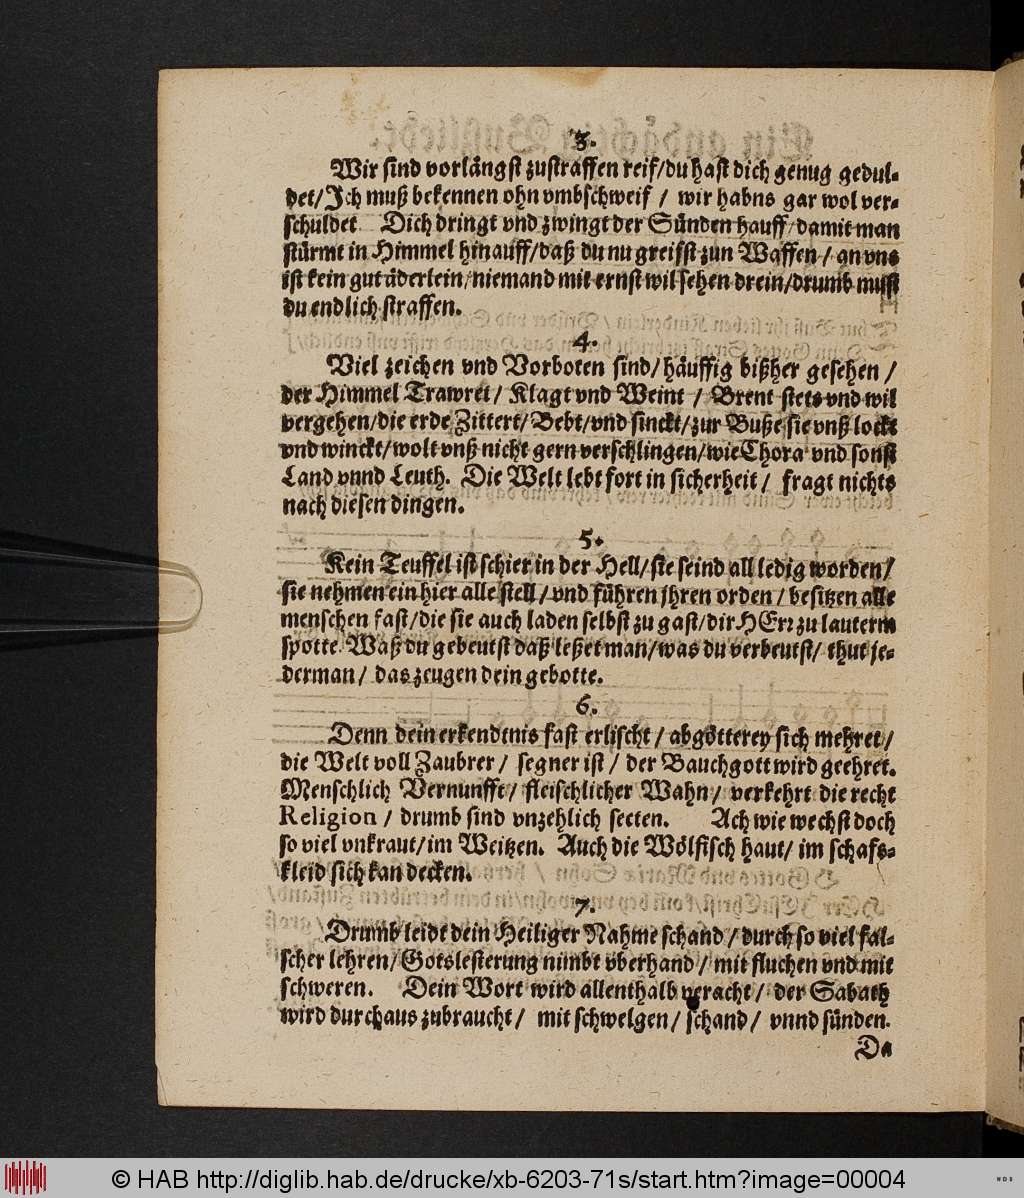 3.
Wir sind vorlängst zustraffen reif/du hast dich genug gedul-
det/Ich muß bekennen ohn vmbschweif / wir habns gar wol ver-
schuldet Dich dringt vnd zwingt der Sünden hauff/damit man
stürmt in Himmel hinauff/daß du nu greiffst zun Waffen / an vns
ist kein gut äderlein/niemand mit ernst wil sehen drein/drumb must
du endlich straffen.
4.
Viel zeichen vnd Vorboten sind/häuffig bißher gesehen /
der Himmel Trawret / Klagt vnd Weint / Brent stets vnd wil
vergehen/die erde Zittert/Bebt/vnd sinckt/zur Buße sie vnß lockt
vnd winckt/wolt vnß nicht gern verschlingen/wie Chora vnd sonst
Land vnnd Leuth. Die Welt lebt fort in sicherheit / fragt nichts
nach diesen dingen.
5.
Kein Teuffel ist schier in der Hell/sie seind all ledig worden/
sie nehmen ein hier alle stell / vnd führen jhren orden / besitzen alle
menschen fast/die sie auch laden selbst zu gast/dir HErr zu lauterm
spotte. Waß du gebeutst daß leßet man/was du verbeutst/ thut je-
derman / das zeugen dein gebotte.
6.
Denn dein erkendtnis fast erlischt / abgötterey sich mehret /
die Welt voll Zaubrer / segner ist / der Bauchgott wird geehret.
Menschlich Vernunfft / fleischlicher Wahn / verkehrt die recht
Religion / drumb sind vnzehlich secten. Ach wie wechst doch
so viel vnkraut/im Weitzen. Auch die Wölfisch haut/ im schafs-
kleid sich kan decken.
7.
Drumb leidt dein Heiliger Nahme schand / durch so viel fal-
scher lehren/Gotslesterung nimbt vberhand / mit fluchen vnd mit
schweren. Dein Wort wird allenthalb veracht / der Sabath
wird durchaus zubraucht / mit schwelgen / schand / vnnd sünden.
Da
© HAB http://diglib.hab.de/drucke/xb-6203-71s/start.htm?image=00004